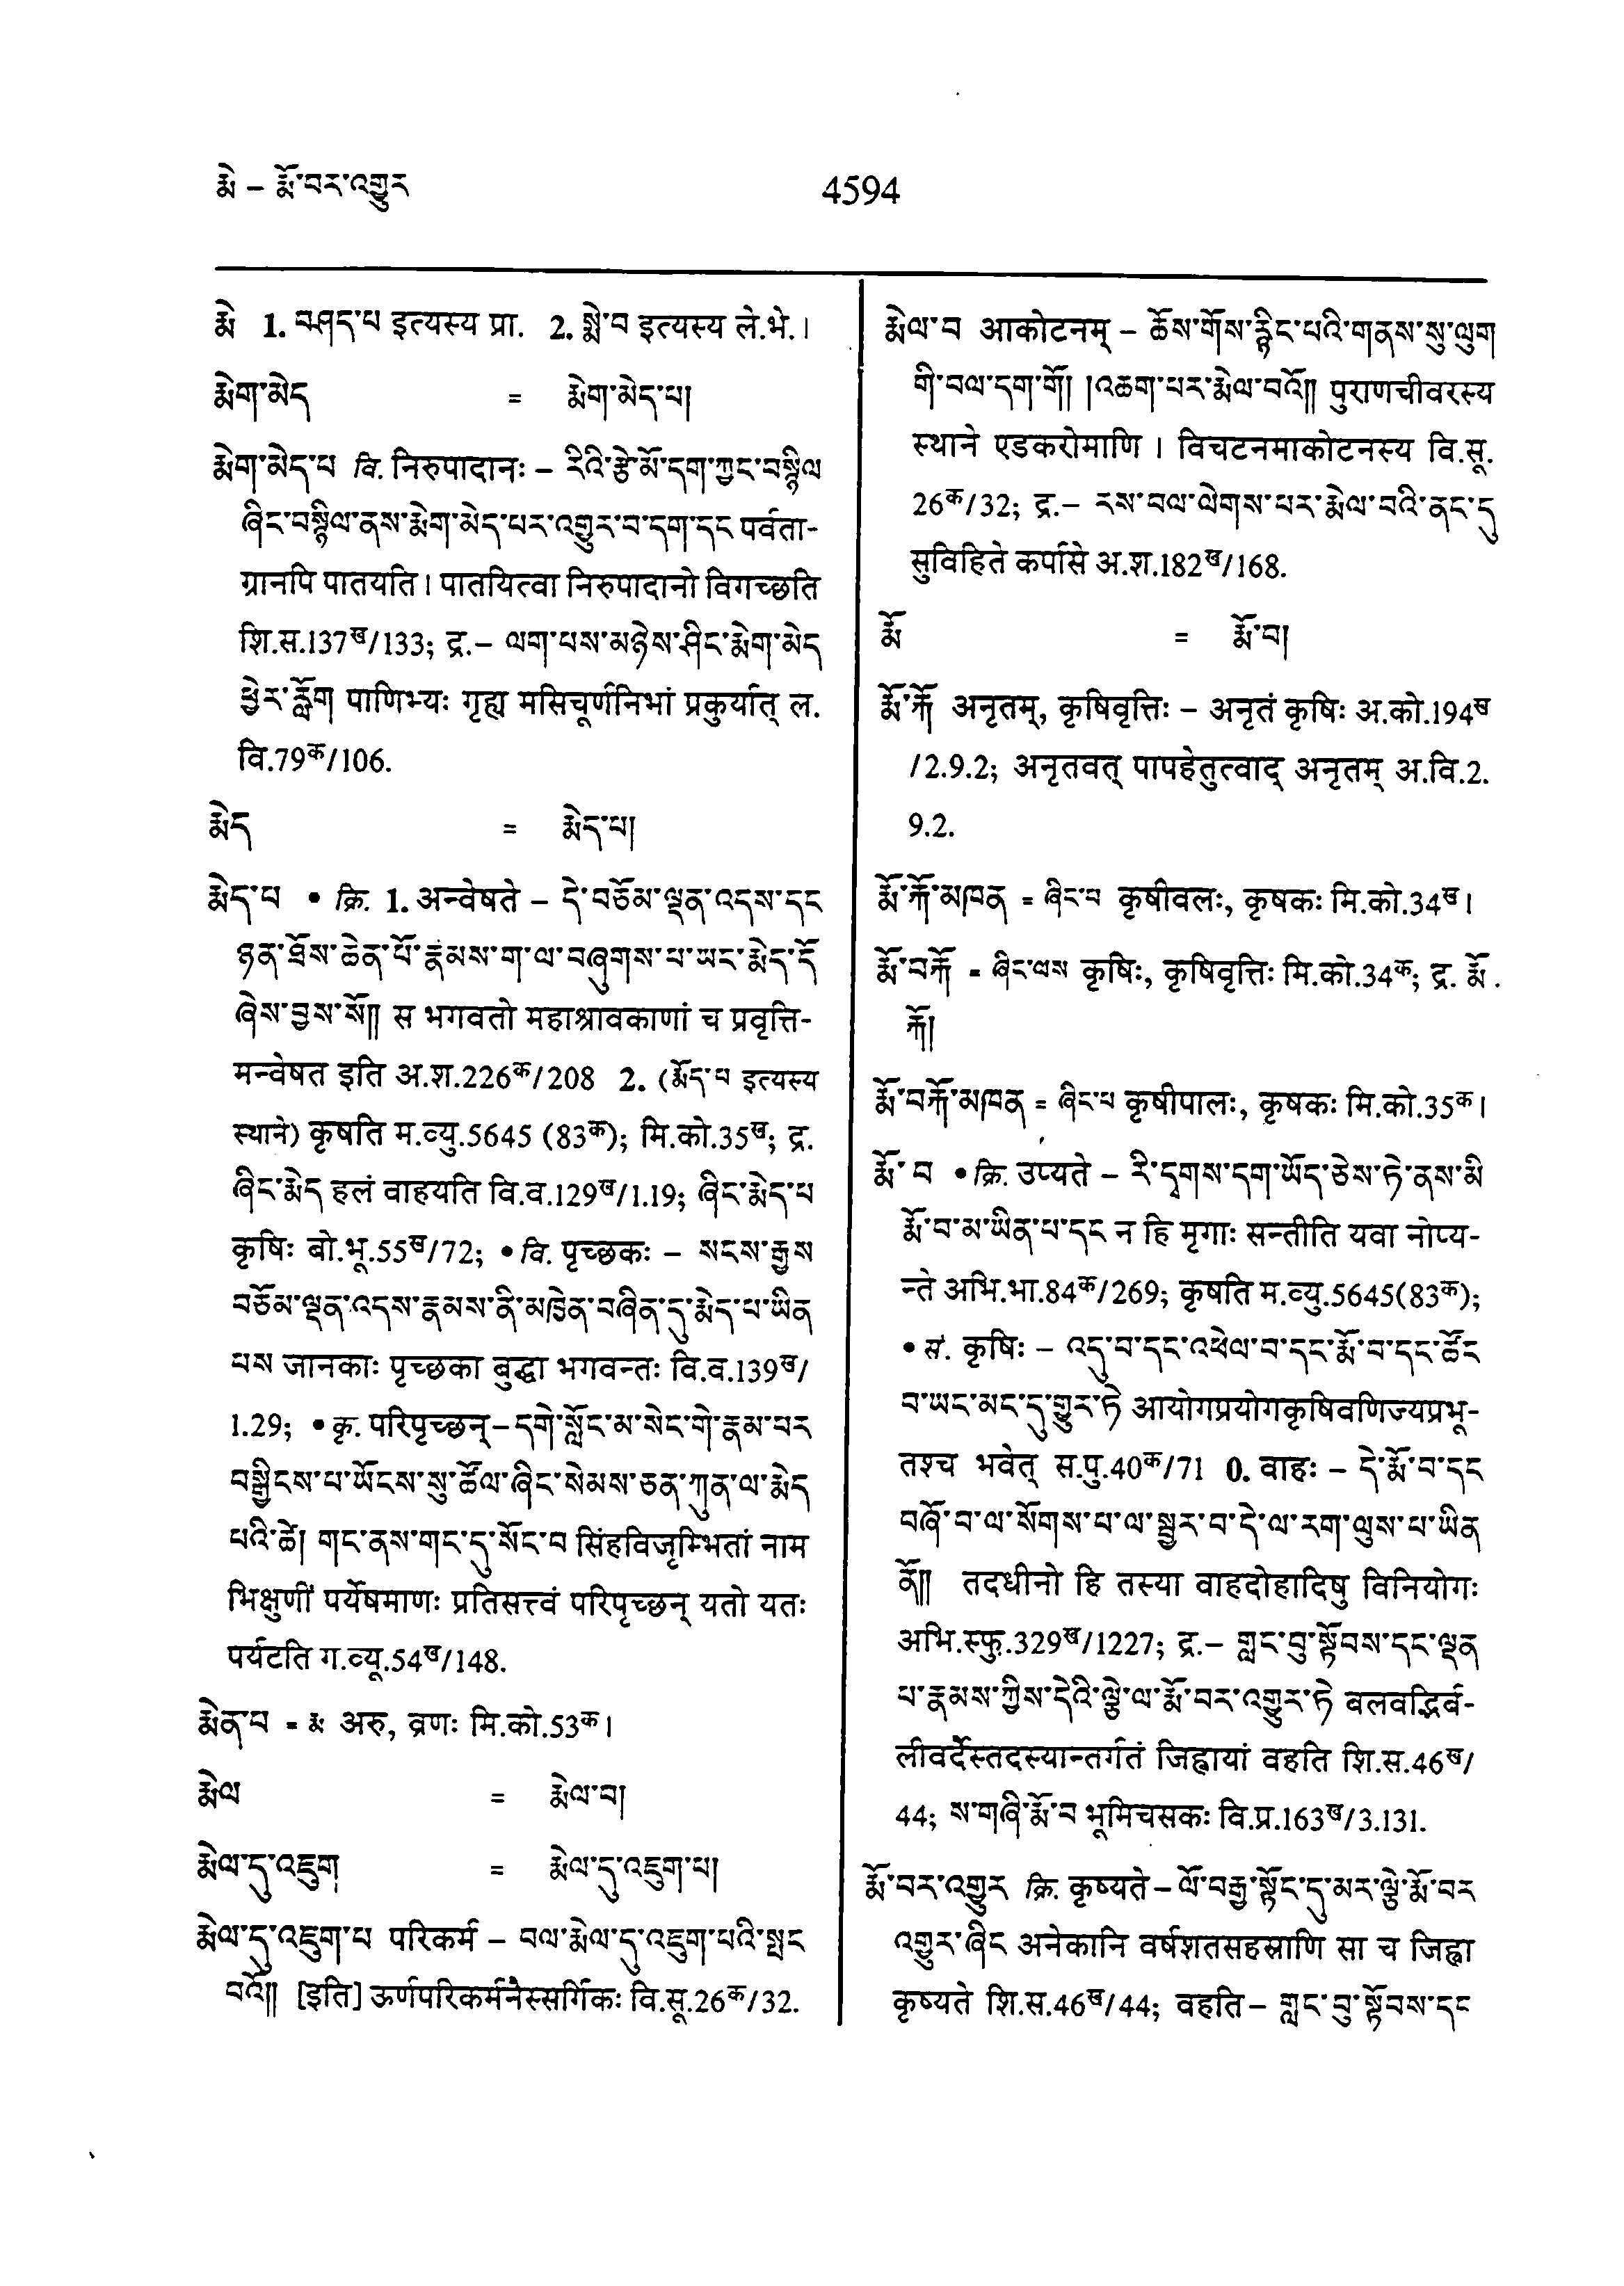 རྨེ – རྨོ་བར་འགྱུར
4594
རྨེ 1. བཤད་པ इत्यस्य प्रा. 2. སྨེ་བ इत्यस्य ले.भे.।
རྨེག་མེད = རྨེག་མེད་པ།
རྨེག་མེད་པ वि. निरुपादानः – རིའི་རྩེ་མོ་དག་ཀྱང་བསྙིལ
ཞིང་བསྙིལ་ནས་རྨེག་མེད་པར་འགྱུར་བ་དག་དང पर्वता-
ग्रानपि पातयति। पातयित्वा निरुपादानो विगच्छति
शि.स.137ख/133; द्र.– ལག་པས་མཉེས་ཤིང་རྨེག་མེད
ཕྱེར་རློག पाणिभ्यः गृह्य मसिचूर्णनिभां प्रकुर्यात् ल.
वि.79क/106.
རྨེད = རྨེད་པ།
རྨེད་པ • क्रि. 1. अन्वेषते – དེ་བཅོམ་ལྡན་འདས་དང
ཉན་ཐོས་ཆེན་པོ་རྣམས་ག་ལ་བཞུགས་པ་ཡང་རྨེད་དོ
ཞེས་བྱས་སོ།། स भगवतो महाश्रावकाणां च प्रवृत्ति-
मन्वेषत इति अ.श.226क/208 2. (རྨོད་པ इत्यस्य
स्थाने) कृषति म.व्यु.5645 (83क); मि.को.35ख; द्र.
ཞིང་རྨེད हलं वाहयति वि.व.129ख/1.19; ཞིང་རྨེད་པ
कृषिः बो.भू.55ख/72; • वि. पृच्छकः – སངས་རྒྱས
བཅོམ་ལྡན་འདས་རྣམས་ནི་མཁྱེན་བཞིན་དུ་རྨེད་པ་ཡིན
པས जानकाः पृच्छका बुद्धा भगवन्तः वि.व.139ख/
1.29; • कृ. परिपृच्छन् – དགེ་སློང་མ་སེང་གེ་རྣམ་པར
བསྒྱིངས་པ་ཡོངས་སུ་ཚོལ་ཞིང་སེམས་ཅན་ཀུན་ལ་རྨེད
པའི་ཚེ། གང་ནས་གང་དུ་སོང་བ सिंहविजृम्भितां नाम
भिक्षुणीं पर्येषमाणः प्रतिसत्त्वं परिपृच्छन् यतो यतः
पर्यटति ग.व्यू.54ख/148.
རྨེན་པ = རྨ अरु, व्रणः मि.को.53क।
རྨེལ = རྨེལ་བ།
རྨེལ་དུ་འཇུག = རྨེལ་དུ་འཇུག་པ།
རྨེལ་དུ་འཇུག་པ परिकर्म – བལ་རྨེལ་དུ་འཇུག་པའི་སྤང
བའོ།། [इति] ऊर्णपरिकर्मनैस्सर्गिकः वि.सू.26क/32.
རྨེལ་བ आकोटनम् – ཆོས་གོས་རྙིང་པའི་གནས་སུ་ལུག
གི་བལ་དག་གོ། །འཆག་པར་རྨེལ་བའོ།། पुराणचीवरस्य
स्थाने एडकरोमाणि । विचटनमाकोटनस्य वि.सू.
26क/32; द्र.– རས་བལ་ལེགས་པར་རྨེལ་བའི་ནང་དུ
सुविहिते कर्पासे अ.श.182ख/168.
རྨོ = རྨོ་བ།
རྨོ་རྐོ अनृतम्, कृषिवृत्तिः – अनृतं कृषिः अ.को.194ख
/2.9.2; अनृतवत् पापहेतुत्वाद् अनृतम् अ.वि.2.
9.2.
རྨོ་རྐོ་མཁན = ཞིང་པ कृषीवलः, कृषकः मि.को.34ख।
རྨོ་བརྐོ = ཞིང་ལས कृषिः, कृषिवृत्तिः मि.को.34क; द्र. རྨོ་
རྐོ།
རྨོ་བརྐོ་མཁན = ཞིང་པ कृषीपालः, कृषकः मि.को.35क।
རྨོ་བ • क्रि. उप्यते – རི་དྭགས་དག་ཡོད་ཅེས་ཏེ་ནས་མི
རྨོ་བ་མ་ཡིན་པ་དང न हि मृगाः सन्तीति यवा नोप्य-
न्ते अभि.भा.84क/269; कृषति म.व्यु.5645(83क);
• सं. कृषिः – འདུ་བ་དང་འཕེལ་བ་དང་རྨོ་བ་དང་ཚོང
བ་ཡང་མང་དུ་གྱུར་ཏེ आयोगप्रयोगकृषिवणिज्यप्रभू-
तश्च भवेत् स.पु.40क/71 0. वाहः – དེ་རྨོ་བ་དང
བཞོ་བ་ལ་སོགས་པ་ལ་སྦྱར་བ་དེ་ལ་རག་ལུས་པ་ཡིན
ནོ།། तदधीनो हि तस्या वाहदोहादिषु विनियोगः
अभि.स्फु.329ख/1227; द्र.– གླང་བུ་སྟོབས་དང་ལྡན
པ་རྣམས་ཀྱིས་དེའི་ལྕེ་ལ་རྨོ་བར་འགྱུར་ཏེ बलवद्भिर्ब-
लीवर्दैस्तदस्यान्तर्गतं जिह्वायां वहति शि.स.46ख/
44; ས་གཞི་རྨོ་བ भूमिचसकः वि.प्र.163ख/3.131.
རྨོ་བར་འགྱུར क्रि. कृष्यते – ལོ་བརྒྱ་སྟོང་དུ་མར་ལྕེ་རྨོ་བར
འགྱུར་ཞིང अनेकानि वर्षशतसहस्राणि सा च जिह्वा
कृष्यते शि.स.46ख/44; वहति – གླང་བུ་སྟོབས་དང